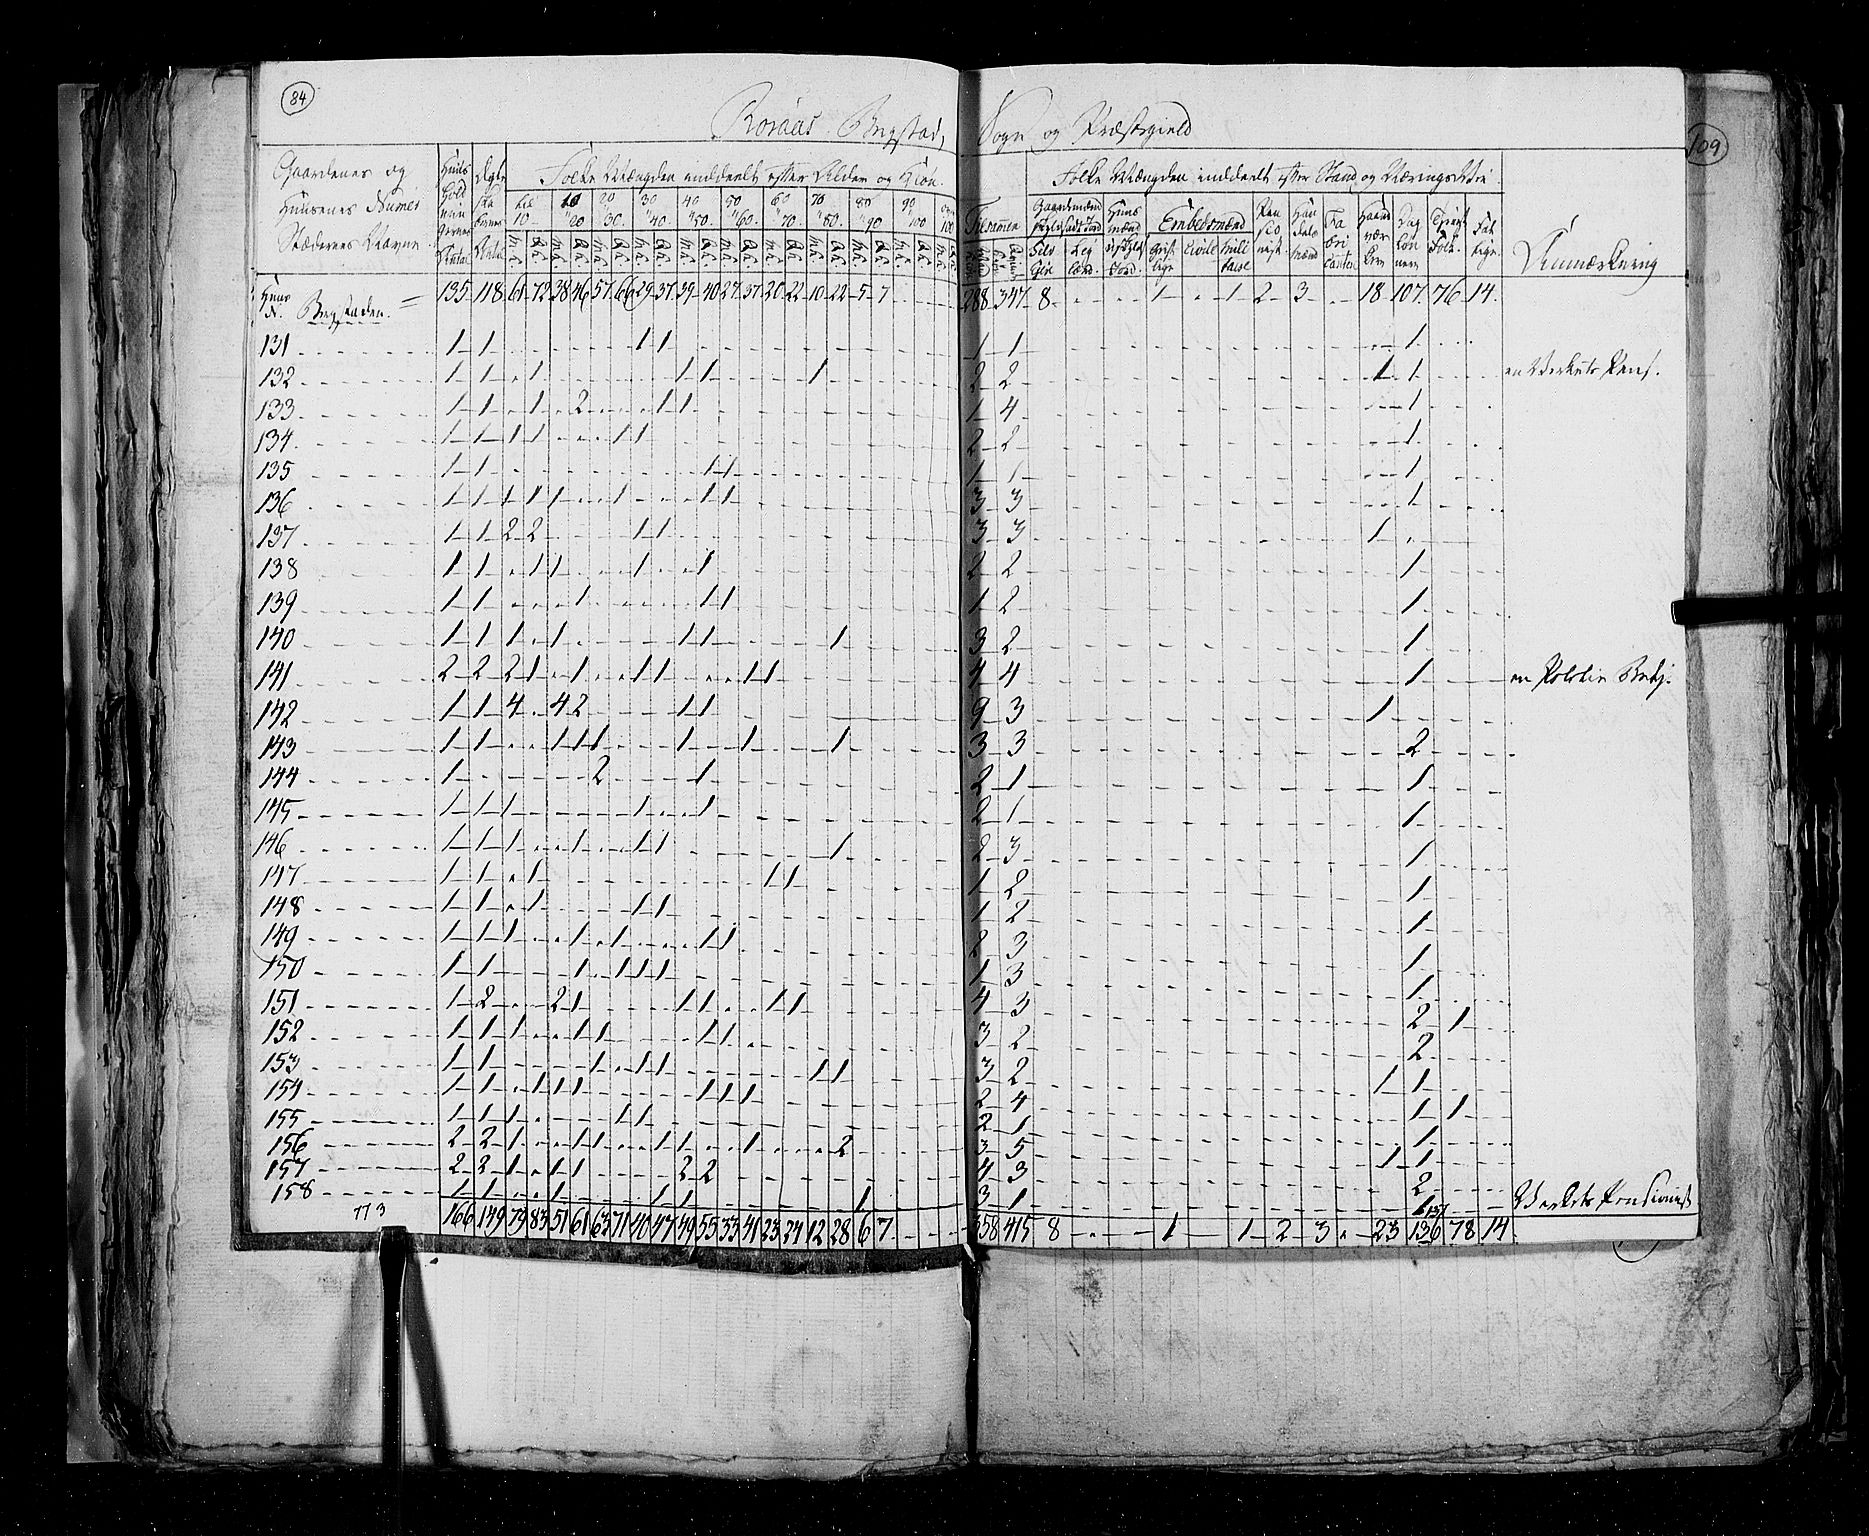 84
109
Roraas Bergstad, Sogn og Præstegield
Gaardenes og Huusenes Numer Stædernes Navne
Folke Mængden inddeelt efter Alder og Kiøn.
Tilsammen
Folke Mængden inddeelt efter Stand og Nærings Vei
Embedsmænd
Anmærkning
til 10 10 " 20 20 " 30 30 " 40 40 " 50 50 " 60 60 " 70 70 " 80 80 " 90 90 " 100 over 100
Huus N. Bergstaden 135 118 61 72 38 46 57 66 29 37 39 40 27 37 20 22 10 22 5 7 288 347 8 1 1 2 3 18 107 76 14
131 1 1 1 1 1 1 1
132 1 1 1 1 1 1 2 2 1 1 en Verkets Pens.
133 1 1 1 2 1 1 1 4 1
134 1 1 1 1 1 1 2 2 1
135 1 1 1 1 1 1 1
136 1 1 1 1 1 1 1 1 3 3 1
137 1 1 2 2 1 1 3 3 1
138 1 1 1 1 1 1 2 2 1
139 1 1 1 1 1 1 2 1
140 1 1 1 1 1 1 1 3 2 1
141 2 2 2 1 1 1 1 1 1 4 4 1 en Politie Betj.
142 1 1 4 4 2 1 1 9 3 1
143 1 1 1 1 1 1 1 1 3 3 2
144 1 2 1 2 1 1
145 1 1 1 1 1 2 1 1
146 1 1 1 1 1 1 1 2 3 1
147 1 1 1 1 1 1 2 1
148 1 1 1 1 1 1 2 1
149 1 1 1 1 1 1 1 2 3 1
150 1 1 1 1 1 1 1 3 1
151 1 2 2 1 1 1 1 1 4 3 2 1
152 1 1 1 1 1 1 1 3 2 2
153 1 1 1 1 1 1 1 3 2 1 1
154 1 1 1 1 1 1 1 1 2 4 1 1
155 1 1 1 1 1 2 1 1
156 2 2 1 1 1 1 1 1 2 3 5 1 1
157 2 2 1 1 1 2 2 4 3 2
158 1 1 1 1 1 1 3 1 1 Verkets Pensionist
773 166 149 79 83 51 61 63 71 40 47 49 55 33 41 23 24 12 28 6 7 358 415 8 1 1 2 3 23 136 78 14
137